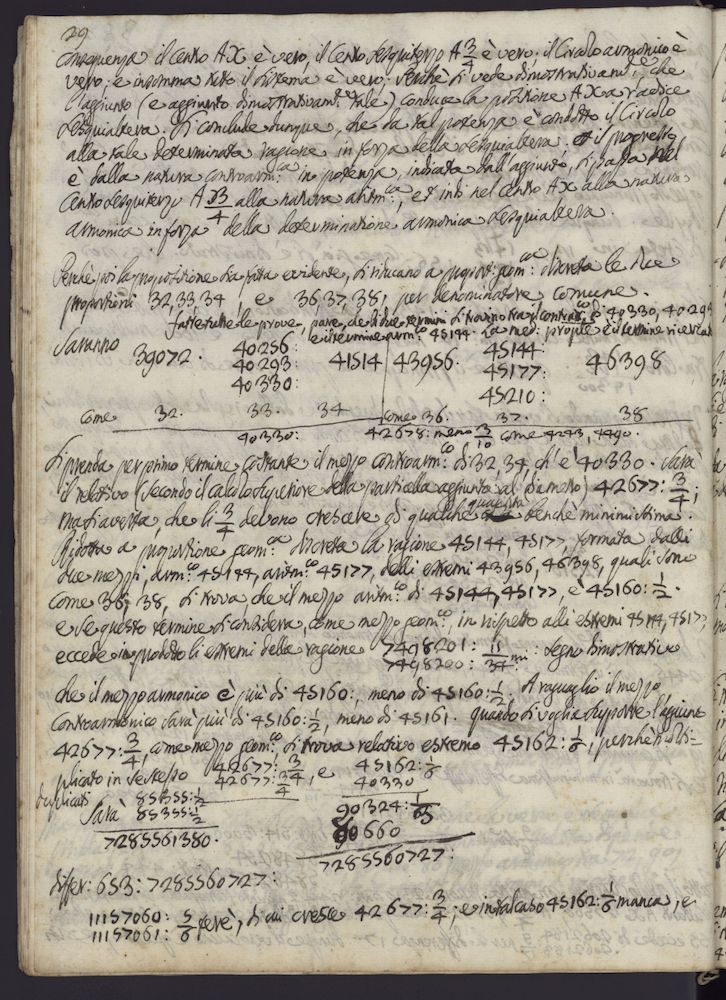 29
conseguenza il Cento AX è vero, il Cento sesquiterzo A 3/4 è vero, il Circolo armonico è
vero, e insomma tutto il sistema è vero: perchè si vede dimostrativam.e, che
l'aggiunto (e aggiunto dimostrativam.e tale) conduce la posizione AX a radice
sesquialtera. Si conclude dunque, che da tal potenza è condotto il Circolo
alla tale determinata ragione in forza della sesquialtera: et il progresso
è dalla natura controarm.ca in potenza, indicata dall'aggiunto, si passa nel
Cento sesquiterzo A 3/4 alla natura aritm.ca, et indi nel Cento AX alla natura
armonica in forza della determinazione armonica sesquialtera.
Perchè poi la proposizione sia fatta evidente, si riducano a proporz. geom.ca discreta le due
proporzioni 32, 33, 34, e 36, 37, 38, per denominatore comune.
fatte tutte le prove, pare, che li due termini di trovino tra il contrar.co è 40330, 40293
e il termine arm.co 45144. La med. prople è il termine ricercato
Saranno 39072. 40256: 40293: 40330: 41514 43956. 45144: 45177: 45210: 46398
come 32. 33. 34 come 36. 37. 38
40330: 42678: meno 3/10 come 4243, 4490.
Si prenda per primo termine costante il mezzo controarm.co di 32, 34, ch'è 40330. Sarà
il relativo (secondo il calcolo superiore della particella aggiunta al diametro) 42677: 3/4;
ma si averta, che li 3/4 devono crescere di qualche quantità benchè minimissima.
Ridotta a proporzione geom.ca discreta la ragione 45144, 45177 formata dalli
due mezzi, arm.co 45144, aritm.co 45177, delli estremi 43956, 46398, quali sono
come 36, 38, si trova, che il mezzo aritm.co di 45144, 45177, è 45160: 1/2.
e se questo termine si considera, come mezzo geom.co, in rispetto alli estremi 45144, 45177,
eccede in prodotto li estremi della ragione 7498201: 7498200: 11/34 mi: segno dimostrativo
che il mezzo armonico è più di 45160:, meno di 45160: 1/2. A raguaglio il mezzo
Controarmonico sarà più di 45160: 1/2, meno di 45161. quando si voglia supporre l'aggiunto
42677: 3/4, come mezzo geom.co, si trova relativo estremo 45162: 1/6, perchè molti=
plicato in se stesso 42677: 3/4 42677: 3/4, e 45162: 1/6 40330
duplicati
Sarà 85355: 1/2 85355: 1/2 90324: 1/3 80660
7285561380. 7285560727:
differ: 653: 7285560727:
11157060: 11157061: 5/6, perè, di cui cresce 42677: 3/4; e in tal caso 45162: 1/6 manca, e